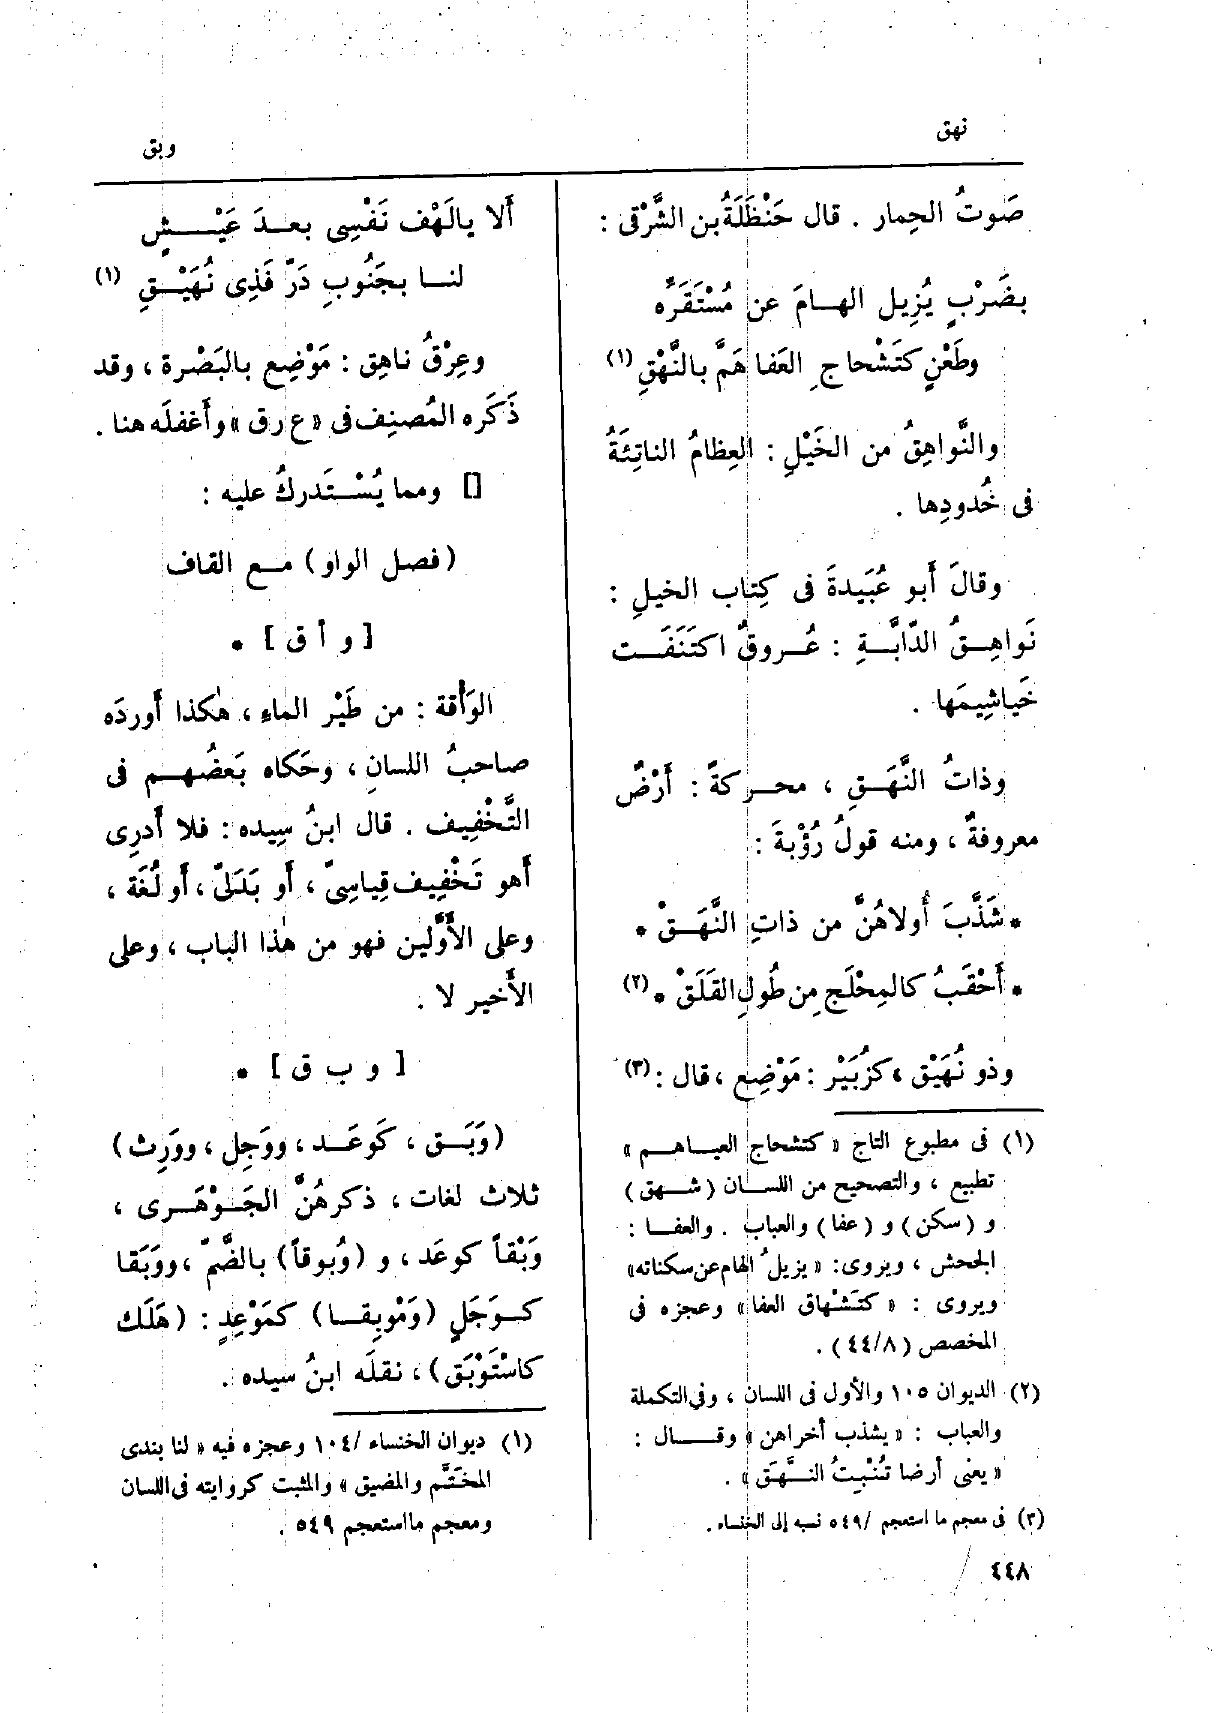 نهق
وبق
صَوتُ الحِمار . قال حَنْظَلَةُ بن الشَّرْقى :
بضَرْبٍ يُزِيل الهامَ عن مُسْتَقَرِّه
وطَعْنٍ كتَشْحاجِ العَفا هَمَّ بالنَّهْقِ (١)
والنَّواهِقُ من الخَيْلِ : العِظامُ الناتِئَةُ
فى خُدودِها .
وقالَ أَبو عُبَيدةَ فى كِتاب الخيلِ :
نَواهِقُ الدّابَّةِ : عُروقٌ اكتَنَفَت
خَياشِيمَها .
وذاتُ النَّهَقِ ، محركةً : أَرْضٌ
معروفةٌ ، ومنه قولُ رُؤْبةَ :
* شَذَّبَ أُولاهُنَّ من ذاتِ النَّهَقْ *
* أَحْقَبُ كالمِحْلَجِ مِن طُولِ القَلَقْ * (٢)
وذو نُهَيْق ، كزُبَيْر : مَوْضِع ، قال : (٣)
(١) فى مطبوع التاج « كتشحاج العباهم »
تطبيع ، والتصحيح من اللسان ( شهق )
و ( سكن ) و ( عفا ) والعباب . والعفا :
الجحش ، ويروى: « يزيلُ الهام عن سكناته»
ويروى : « كتَشْهاق العفا » وعجزه فى
المخصص ( ٤٤/٨ ) .
(٢) الديوان ١٠٥ والأول فى اللسان ، وفى التكملة
والعباب : « يشذب أخراهن » وقال :
« يعنى أرضا تُنْبِتُ النَّهَق » .
(٣) فى معجم ما استعجم /٥٤٩ نسبه إلى الخنساء .
٤٤٨
أَلا يالَهْف نَفْسِى بعدَ عَيْشٍ
لنا بجَنُوبِ دَرّ فَذِى نُهَيْقِ (١)
وعِرْقُ ناهِق : مَوْضِع بالبَصْرة ، وقد
ذَكَره المُصنِف فى « ع رق » وأَغفلَه هنا .
[] ومما يُسْتَدركُ عليه :
( فصل الواو ) مع القاف
[ و أ ق ] *
الوَأْقة : من طَيْر الماءِ ، هٰكذا أَوردَه
صاحبُ اللسانِ ، وحَكاه بَعضُهم فى
التَّخْفِيف . قال ابنُ سِيده : فلا أَدرِى
أَهو تَخْفِيف قِياسِىّ ، أَو بَدَلىّ ، أَو لُغَة ،
وعلى الأَوَّلين فهو من هٰذا الباب ، وعلى
الأَخير لا .
[ و ب ق ] *
(وَبَق ، كَوعَد ، ووَجِل ، ووَرِث)
ثلاث لغات ، ذكرهُنَّ الجَوْهَرى ،
وَبْقاً كوعَد ، و (وُبوقاً) بالضَّمّ ، ووَبَقا
كوَجَلٍ (وَمْوبِقا) كمَوْعِدٍ : (هَلَك
كاسْتَوْبَق) ، نقلَه ابنُ سيده .
(١) ديوان الخنساء /١٠٤ وعجزه فيه « لنا بندى
المخَتَّم والمضيق » والمثبت كروايته فى اللسان
ومعجم ما استعجم ٥٤٩ .